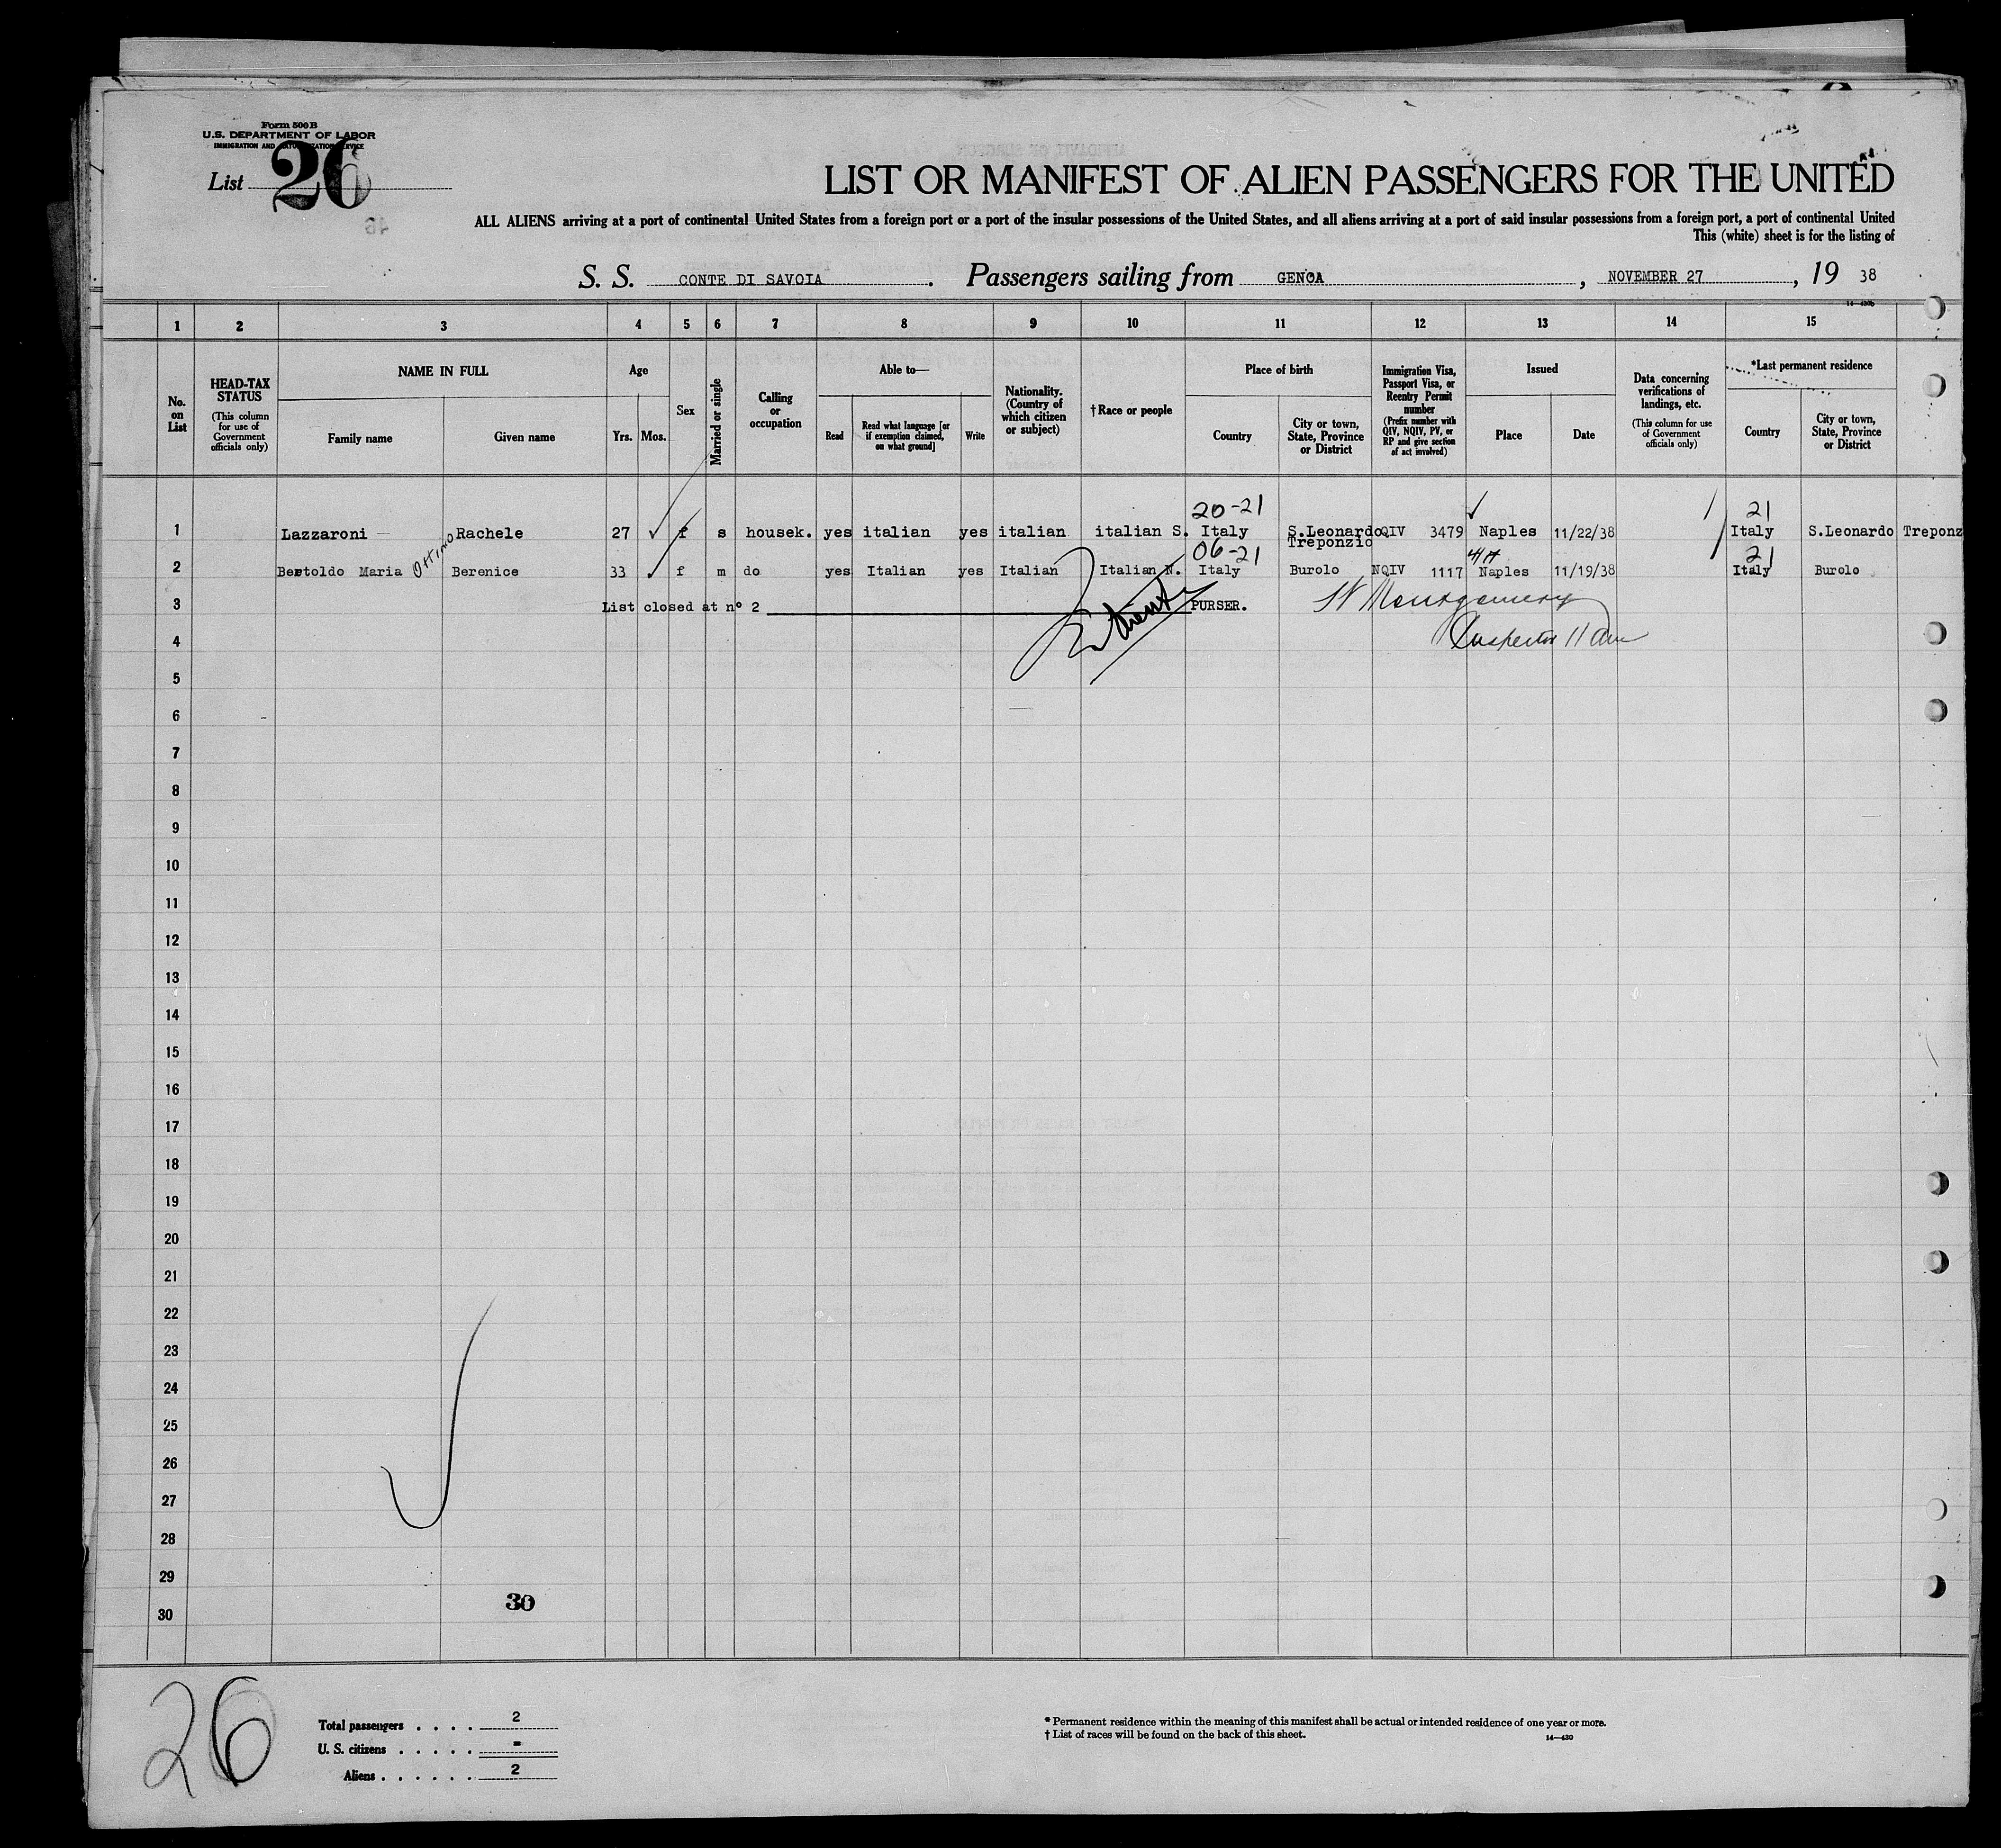 Form 500 B
U.S. DEPARTMENT OF LABOR
IMMIGRATION AND NATURALIZATION SERVICE
List 26
LIST OR MANIFEST OF ALIEN PASSENGERS FOR THE UNITED
ALL ALIENS arriving at a port of continental United States from a foreign port or a port of the insular possessions of the United States, and all aliens arriving at a port of said insular possessions from a foreign port, a port of continental United
This (white) sheet is for the listing of
S. S. CONTE DI SAVOIA. Passengers sailing from GENOA, NOVEMBER 27, 19 38
1 2 3 4 5 6 7 8 9 10 11 12 13 14 15
No. on List
HEAD-TAX STATUS (This column for use of Government officials only)
NAME IN FULL
Family name Given name
Age
Yrs. Mos.
Sex
Married or single
Calling or occupation
Able to—
Read Read what language [or if exemption claimed, on what ground] Write
Nationality. (Country of which citizen or subject)
† Race or people
Place of birth
Country City or town, State, Province or District
Immigration Visa, Passport Visa, or Reentry Permit number (Prefix number with QIV, NQIV, PV, or RP and give section of act involved)
Issued
Place Date
Data concerning verifications of landings, etc. (This column for use of Government officials only)
*Last permanent residence
Country City or town, State, Province or District
20-21 21
1 Lazzaroni Rachele 27 f s housek. yes italian yes italian italian S. Italy S.Leonardo QIV 3479 Naples 11/22/38 Italy S.Leonardo Treponz
Treponzio
06-21 4A 21
2 Bertoldo Maria Ottino Berenice 33 f m do yes Italian yes Italian Italian N. Italy Burolo NQIV 1117 Naples 11/19/38 Italy Burolo
3 List closed at n° 2 PURSER. Montgomery
4 Inspector
5
6
7
8
9
10
11
12
13
14
15
16
17
18
19
20
21
22
23
24
25
26
27
28
29
30
30
26
Total passengers . . . . 2
U. S. citizens . . . . . -
Aliens . . . . . . 2
* Permanent residence within the meaning of this manifest shall be actual or intended residence of one year or more.
† List of races will be found on the back of this sheet.
14—430